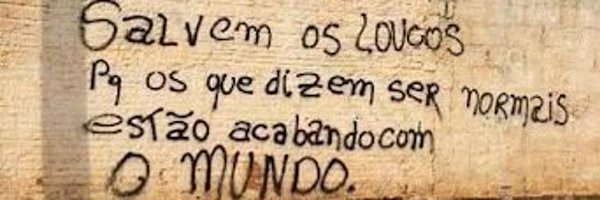 SALvem os LOUCOS
Pq os que dizem ser normais
estão acabando com
O MUNDO.